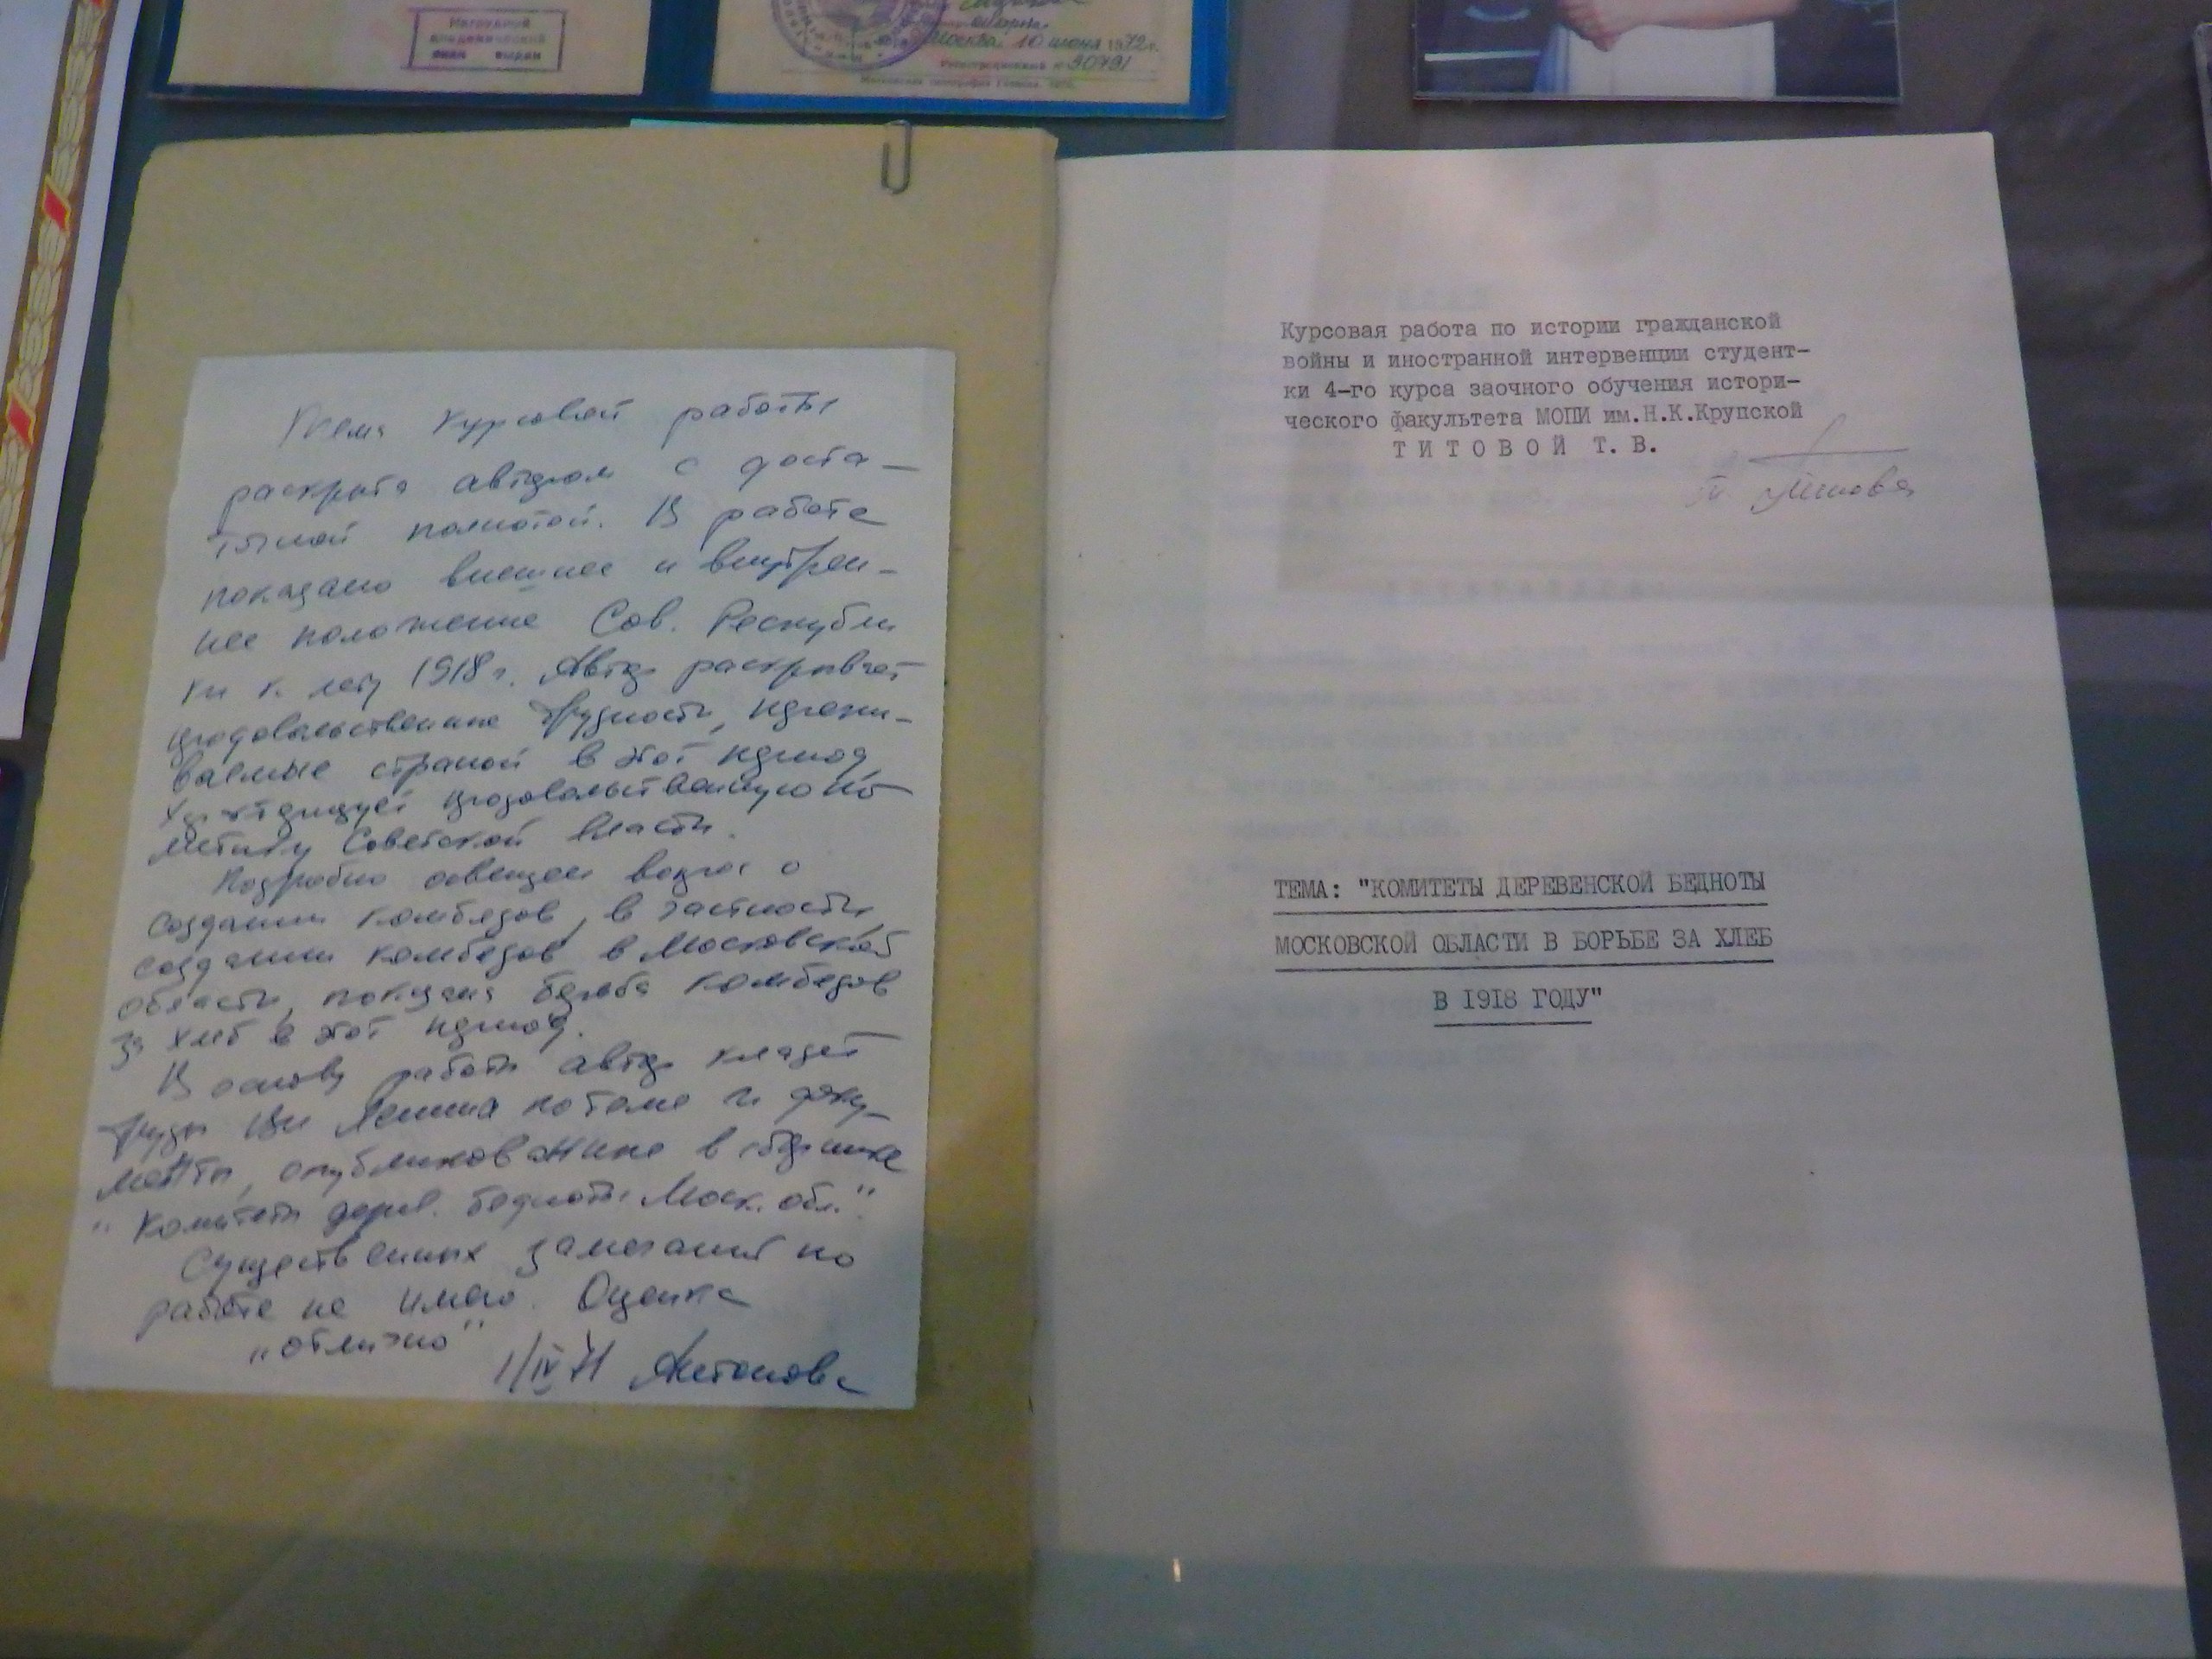 Нагрудной
академический
знак выдан
Москва 10 июня 1972 г.
Регистрационный № 30791
Тема курсовой работы
раскрыта автором с доста-
точной полнотой. В работе
показано внешнее и внутрен-
нее положение Сов. Республи
ки к лету 1918 г. Автор раскрывает
продовольственные трудности, пережи-
ваемые страной в этот период,
характеризует продовольственную по
литику Советской власти.
Подробно освещен вопрос о
создании комбедов, в частности,
создании комбедов в Московской
области, показана борьба комбедов
за хлеб в этот период.
В основу работы автор кладет
труды Ви Ленина по теме и доку-
менты, опубликованные в сборнике
"Комитеты дерев. бедноты Моск. обл.".
Существенных замечаний по
работе не имею. Оценка
„отлично"
1/IV 71 Антонова
Курсовая работа по истории гражданской
войны и иностранной интервенции студент-
ки 4-го курса заочного обучения истори-
ческого факультета МОПИ им.Н.К.Крупской
Т И Т О В О Й Т. В.
Титова
ТЕМА: "КОМИТЕТЫ ДЕРЕВЕНСКОЙ БЕДНОТЫ
МОСКОВСКОЙ ОБЛАСТИ В БОРЬБЕ ЗА ХЛЕБ
В 1918 ГОДУ"